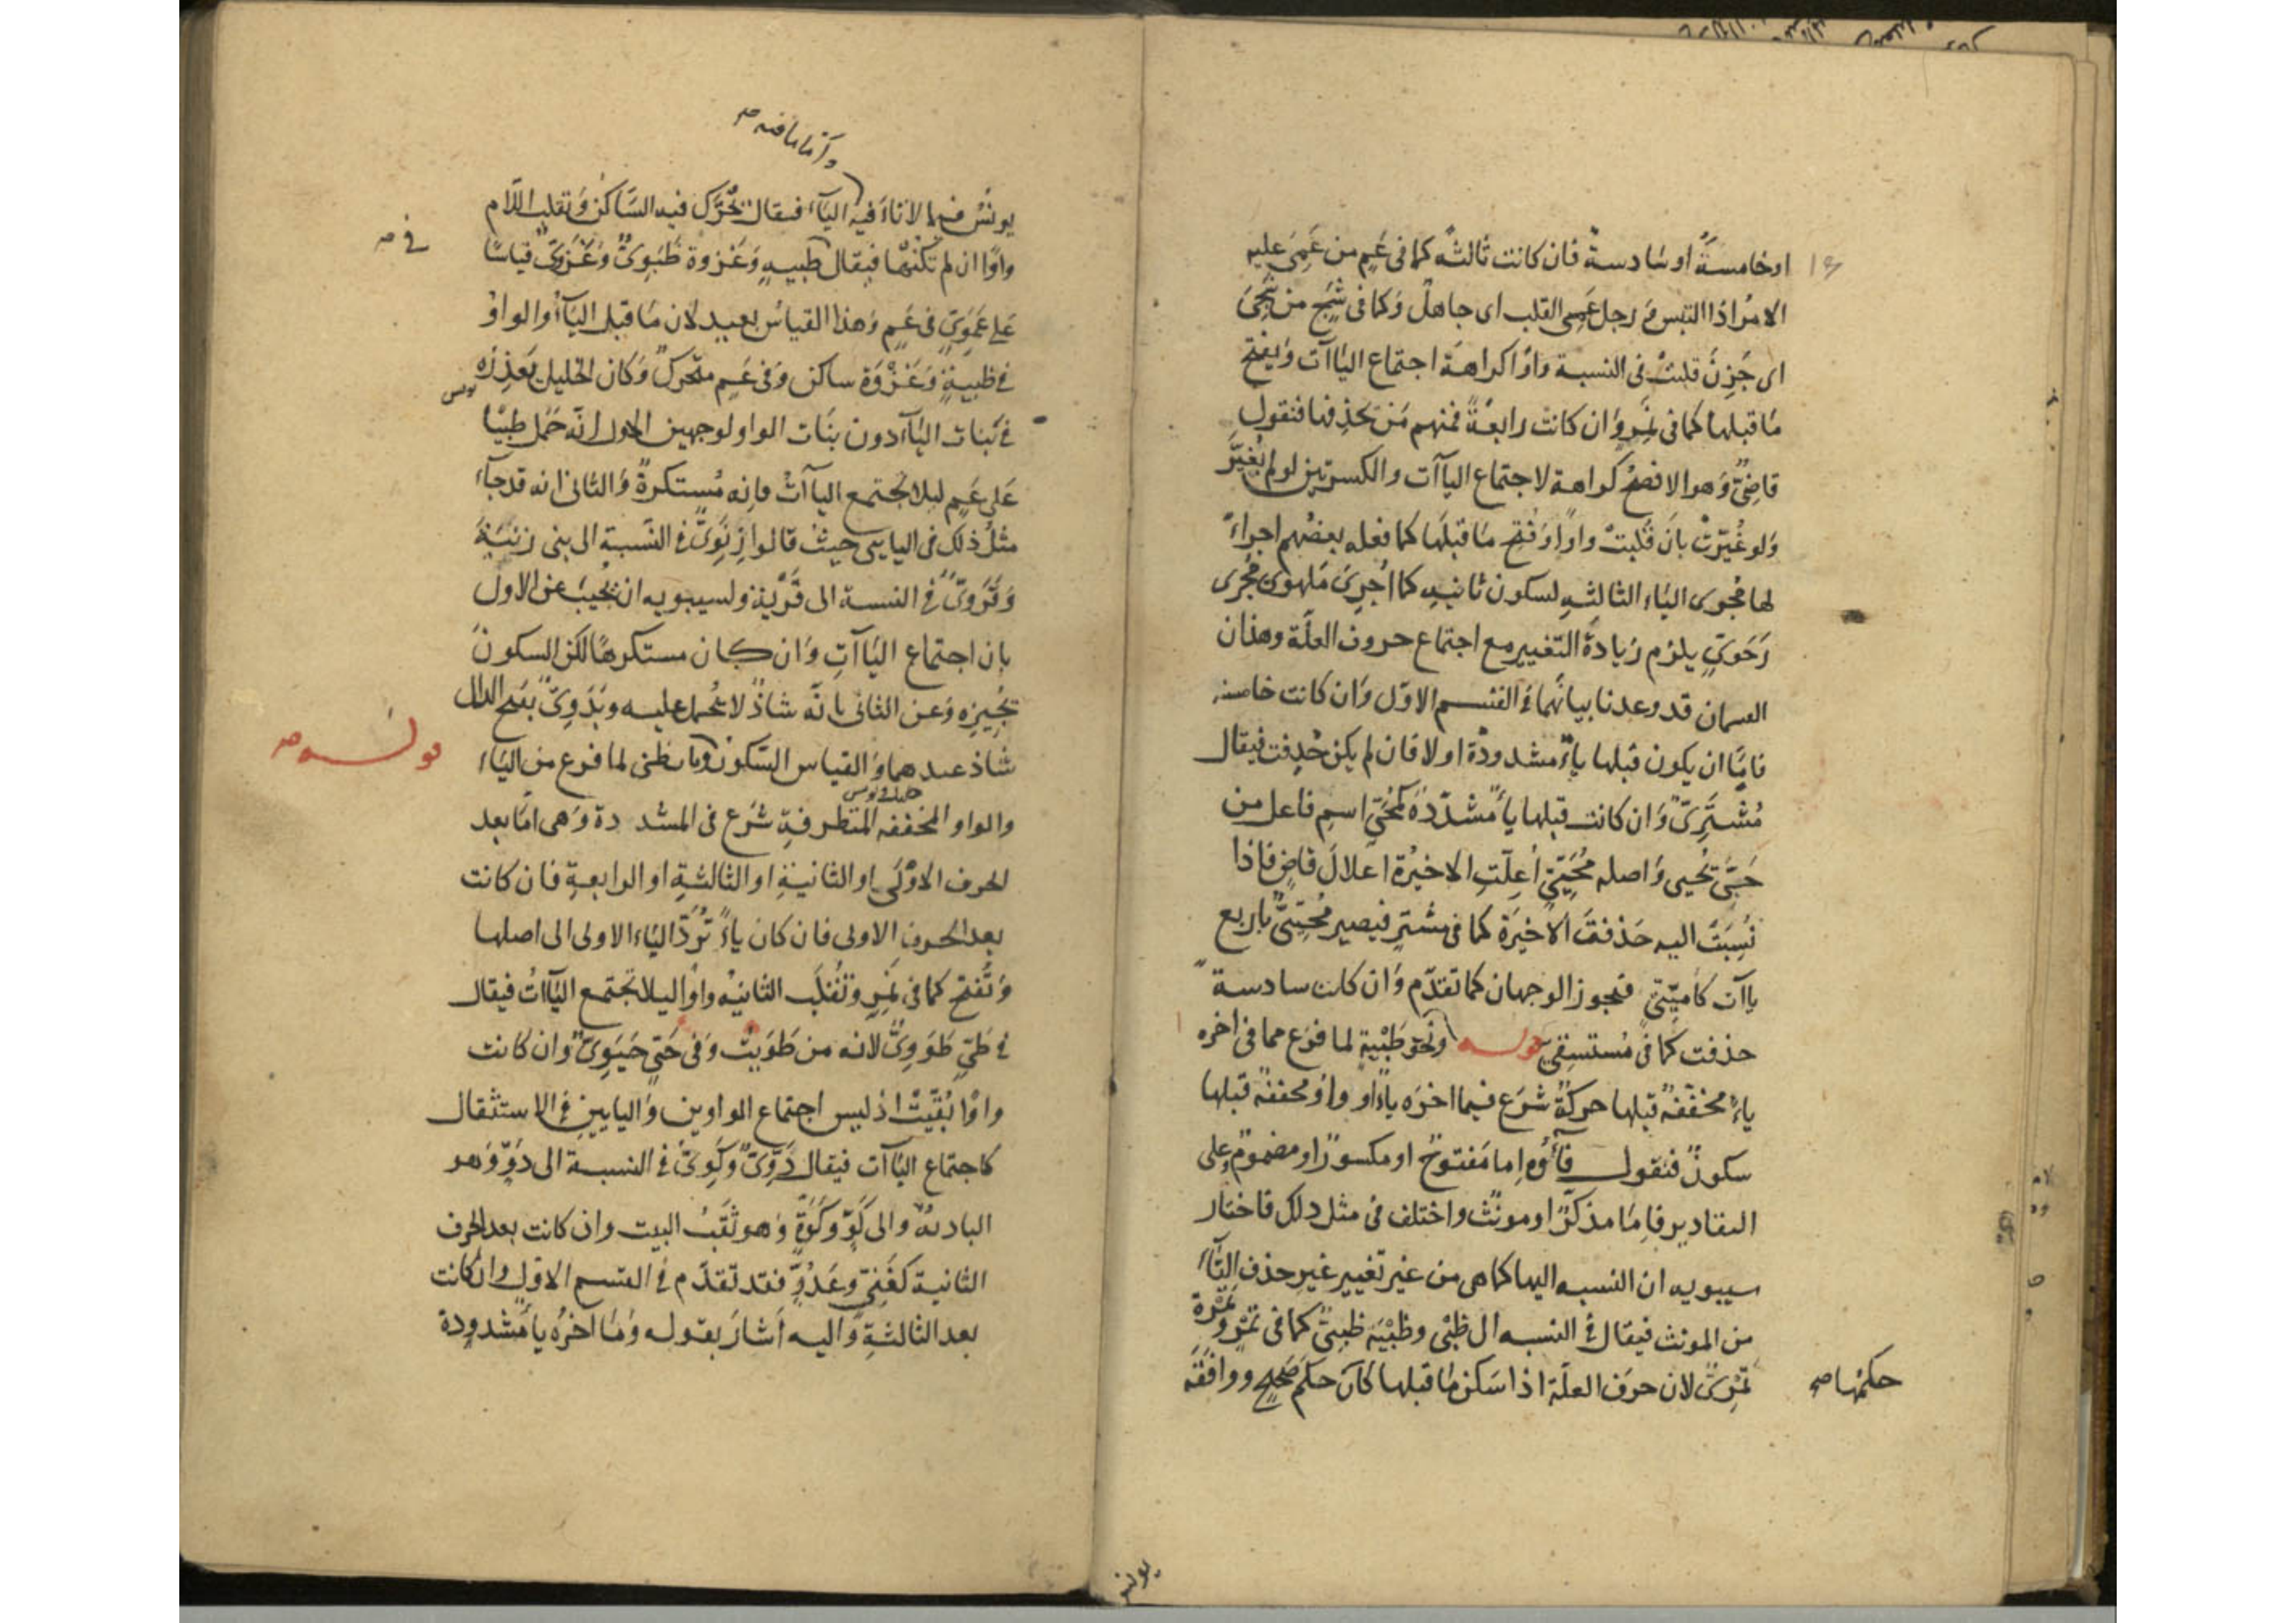 او خامسةً او سَادسةً فان كانت ثالثه كما فى عَمٍ من عَمِىَ عليه
الامرُ اذا التبس وَ رجل عَمِى القلب اى جاهل وَكما فى شَجٍ من شَجِىَ
اى حَزِنَ قلبتْ فى النسبة واوًا كراهةَ اجتماع اليَاآت وَيفتح
مَا قبلها كما فى نَمِرٍ وَان كانت رابعَةً فمنهم مَن يحذِفها فتقول
قاضِىٌّ وَهو الافصحُ كراهة لاجتماع الياآت والكسرتين لو لم يُغيَّر
وَلو غُيّرَتْ بِانَ قُلبتْ واوًا وَفُتح مَا قبلَها كما فعله بعضُهم اجراءً
لها مُجرى اليَاء الثالثهِ لسكون ثانيهِ كما اُجرِىَ مَلهوىٌ مُجرى
رَحَوىٍّ يلزم زيادةُ التغيير مع اجتماع حروف العلّة وهذان
القسمان قد وعدنا بيانَهُما فى القسم الاوّل وَان كانت خامسه
فامّا ان يكون قبلها ياءٌ مشدودةٌ او لا فان لم يكن حُذِفت فيقال
مُشْتَرِىٌّ وَان كانت قبلها ياءٌ مشدّدةٌ كمُحَىٍّ اسم فاعل من
حَيَّى يُحيى وَاصله مُحَيِّىٌ اُعِلّتِ الاخيرَة اعلالَ قاضٍ فاذا
نُسِبَتْ اليه حَذفتَ الاخيرَة كما فى مشترٍ فيصير مُحَيِّىٌّ باربع
ياآت كاُمَيِّىّ فيجوز الوجهان كما تقدّم وَان كانت سادسةً
حذفت كما فى مُستسقِىّ قوله ونَحوَ ظَبْيةٍ لما فرغ مما فى اخره
ياءٌ مخففةٌ قبلها حركةٌ شَرَع فيما اخرَه ياءٌ او واوٌ مخففةٌ قبلها
سكونٌ فنقول فاؤه اِما مَفتوحٌ او مكسورٌ او مضمومٌ وعلى
التقادير فاِمّا مذكّرٌ او مونّث واختلف فى مثل ذلك فاختار
سيبويه ان النسبه اليها كما هى من غير تغيير غير حذف التّاء
من المونث فيقال فى النسبه الى ظَبْى وظَبْيَة ظَبيىٌّ كما فى تمْرٍ وتَمْرَةٍ
تَمْرِىّ لان حرفَ العلّة اذا سَكن مَا قبلها كانَ حكم صَحيح ووافقَه
حكمها صح
يونس
وَامّا ما فيه صح
يونسُ فيما لا تاءَ فيه اليَآء فيقال يُحَرَّك فيه السَّاكن وَتقلب اللَّام
واوًا ان لم تكنْهَا فيقال ظبيهٍ وَغزوة ظَبَوِىٌّ وَغَزَوِىٌّ قياسًا
فى صح
عَلى عَمَوِىٍّ فى عَمٍ وَهذا القياسُ بعيد لان مَا قبل اليَآءِ والواوِ
فى ظبيةٍ وَغَزْوَةٍ ساكن وَفى عَمٍ متحرك وَكان الخليل يَعْذِرُه
يونس
فى بَنات اليَاء دون بنَات الواو لوجهين الاول انَّه حَمَل ظبيًا
عَلى عَمٍ ليلا تجتمع الياآتُ فاِنه مُستكرهٌ وَالثانى انه قد جآء
مثلُ ذلك فى اليايى حيث قالوا زِنَوىٌّ فى النسبة الى بنى زِنْيَة
وَقَرَوىٌّ فى النسبة الى قَرْيَةٍ ولسيبويه ان يُجيبَ عن الاول
بان اجتماع اليَاآتِ وَان كان مستكرهًا لكن السكونَ
يُجيزه وَعن الثانى بانَّه شاذٌ لا يُحمل عليه وبَدَوِىٌّ بفتح الدال
شاذ عندهما وَالقياس السّكون وَيَا ظبى لما فرغ من اليَاء
قوله صح
والواو المخففه المتطرفةِ شَرَع فى المشددة وَهى امّا بعد
الحرف الاوْلَى او الثانيةِ او الثالثةِ او الرابعةِ فان كانت
بعد الحرفِ الاولى فان كان ياءً تُرَدّ اليَاء الاولى الى اصلها
وَتُفتح كما فى نَمِرٍ وَتُقلَب الثانيةُ واوًا ليلا تجتمع اليَاآتُ فيقال
فى طَىٍّ طَوَوِىٌّ لانه من طَوَيتُ وَفى حَىٍّ حَيَوِىٌّ وَان كانت
واوًا بُقّيَتْ اذ ليس اجتماع الواوين وَاليايين فى الاستثقال
كاجتماع اليَاآت فيقال دَوِّىٌّ وَكَوِّىٌّ فى النسبة الى دَوٍّ وَهو
الباديه والى كَوٍّ وكَوّةٍ وَهو ثَقْبُ البيت وان كانت بعد الحرف
الثانية كغَنِىٍّ وعَدُوٍّ فقد تقدّم فى القسم الاوّل وان كانت
بعد الثالثةِ وَاليه اَشارَ بقوله وَمَا اخرُه ياءٌ مَشدودة